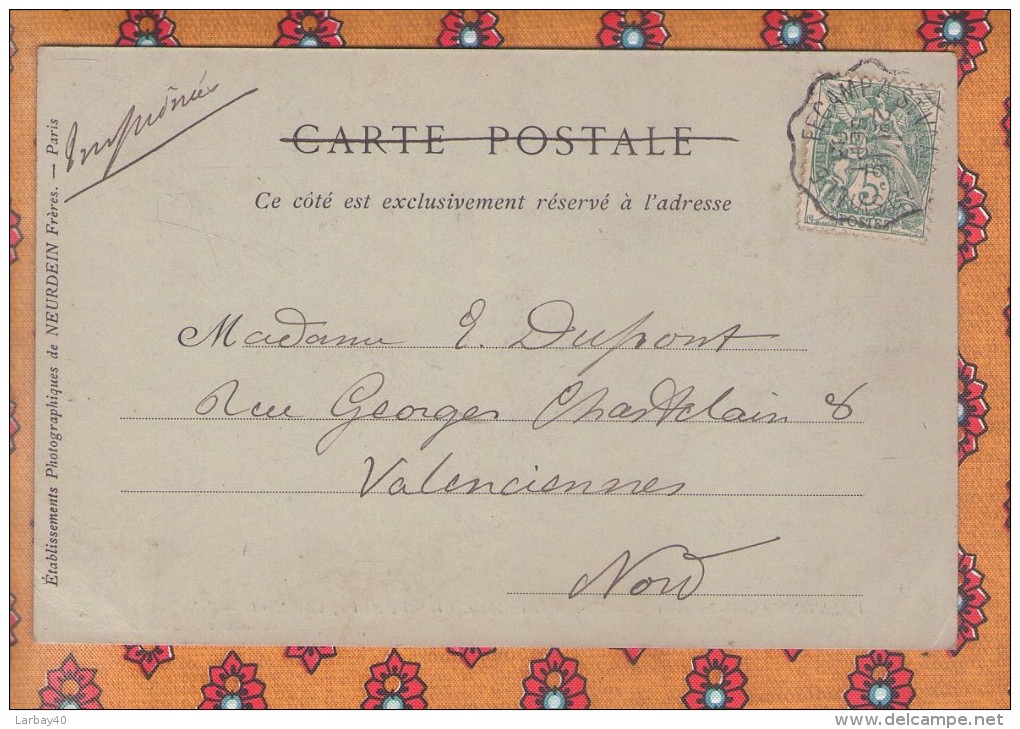 Imprimés
CARTE POSTALE
Ce côté est exclusivement réservé à l'adresse
Établissements Photographiques de NEURDEIN Frères. — Paris
FECAMP A
5c
POSTES
Madame E. Dupont
Rue Georges Chastelain 8
Valenciennes
Nord
Larbay40
www.delcampe.net